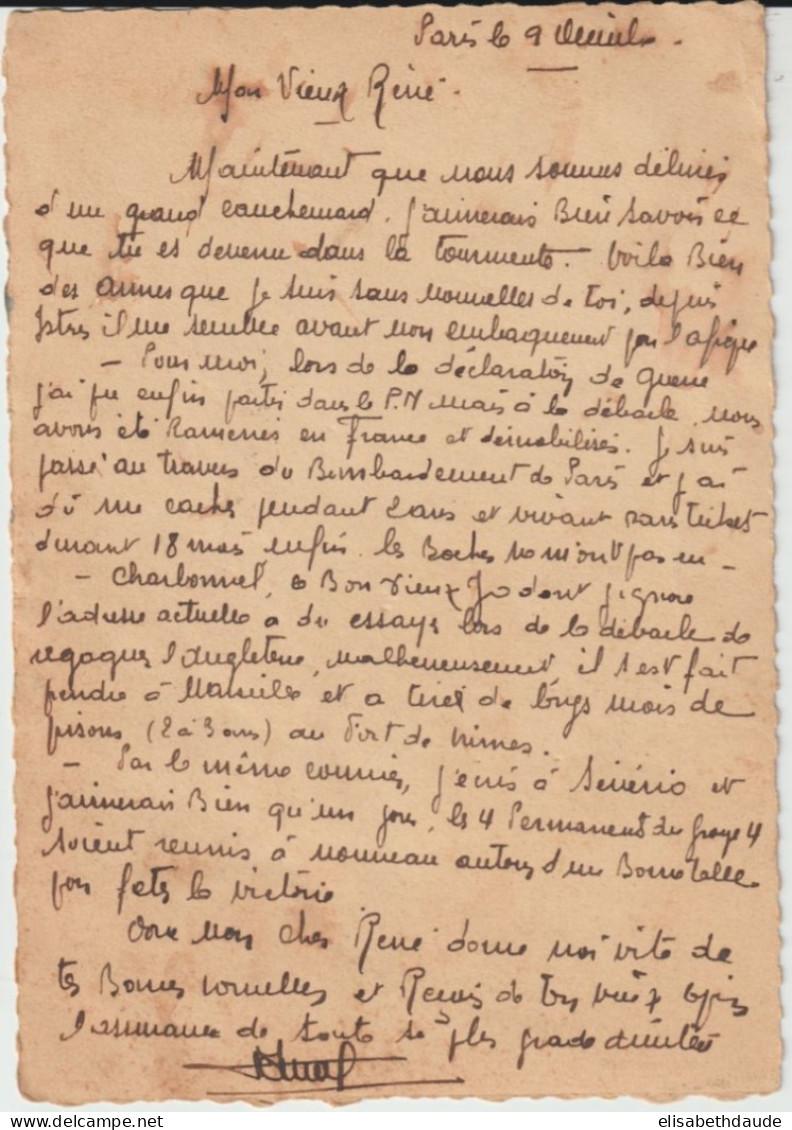 Paris le 9
Mon Vieux René.
Maintenant que nous sommes délivrés
d'un grand cauchemard. J'aimerais Bien savoir ce
que tu es devenu dans la tourmente. Voila Bien
des annes que je suis sans nouvelles de toi, depuis
Istres il me semble avant mon embaquement pour l'afrique
- Pour moi, lors de la déclaration de guerre
j'ai pu enfin partir dans le P.N mais à la débacle nous
avons été ramenés en France et démobilisés. Je suis
passé au travers du Bombardement de Paris et j'ai
dû me cacher pendant 2 ans et vivant sans ticket
durant 18 mois, enfin les Boches ne m'ont pas eu -
- Charbonnel, ce Bon vieux Jo dont j'ignore
l'adresse actuelle a du essayé lors de la débacle de
regagner l'Angleterre, malheureusement il s'est fait
prendre à Marseille et a tiré de longs mois de
prisons (2 à 3 ans) au Fort de Nimes.
- Par le même courrier, j'écris à Sévério et
j'aimerais Bien qu'un jour, les 4 Permanent du groupe 4
soient reunis à nouveau autour d'une Bonne table
pour feter la victoire
Donc mon cher René donne moi vite de
tes Bonnes nouvelles et Reçois de ton vieux
l'assurance de toute sa plus grande amitiée
elisabethdaude